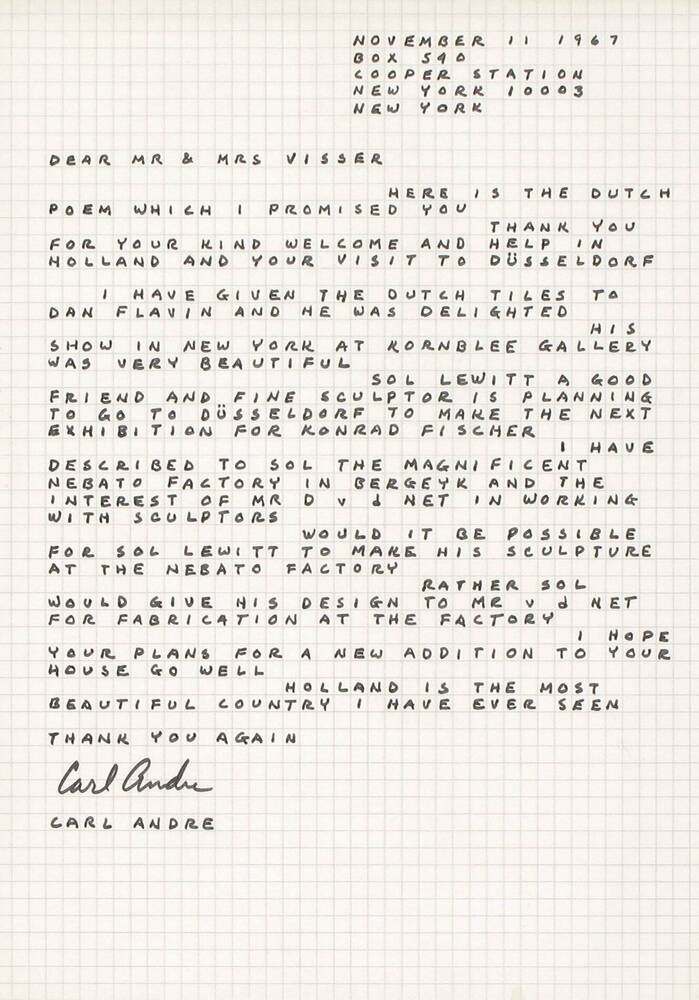 NOVEMBER 11 1967
BOX 540
COOPER STATION
NEW YORK 10003
NEW YORK
DEAR MR & MRS VISSER
HERE IS THE DUTCH
POEM WHICH I PROMISED YOU
THANK YOU
FOR YOUR KIND WELCOME AND HELP IN
HOLLAND AND YOUR VISIT TO DÜSSELDORF
I HAVE GIVEN THE DUTCH TILES TO
DAN FLAVIN AND HE WAS DELIGHTED
HIS
SHOW IN NEW YORK AT KORNBLEE GALLERY
WAS VERY BEAUTIFUL
SOL LEWITT A GOOD
FRIEND AND FINE SCULPTOR IS PLANNING
TO GO TO DÜSSELDORF TO MAKE THE NEXT
EXHIBITION FOR KONRAD FISCHER
I HAVE
DESCRIBED TO SOL THE MAGNIFICENT
NEBATO FACTORY IN BERGEYK AND THE
INTEREST OF MR D v d NET IN WORKING
WITH SCULPTORS
WOULD IT BE POSSIBLE
FOR SOL LEWITT TO MAKE HIS SCULPTURE
AT THE NEBATO FACTORY
RATHER SOL
WOULD GIVE HIS DESIGN TO MR v d NET
FOR FABRICATION AT THE FACTORY
I HOPE
YOUR PLANS FOR A NEW ADDITION TO YOUR
HOUSE GO WELL
HOLLAND IS THE MOST
BEAUTIFUL COUNTRY I HAVE EVER SEEN
THANK YOU AGAIN
Carl Andre
CARL ANDRE